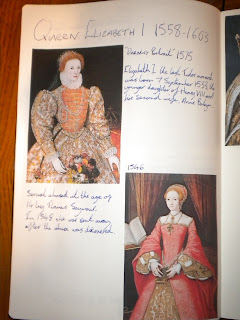 QUEEN ELIZABETH I 1558-1603
'Darnley Portrait' 1575
Elizabeth I the last Tudor monarch
was born 7 September 1533, the
younger daughter of Henry VIII and
his second wife, Anne Boleyn.
1546
abused at the age of
14 by Thomas Seymour.
In 1548 she was sent away
after the abuse was discovered.